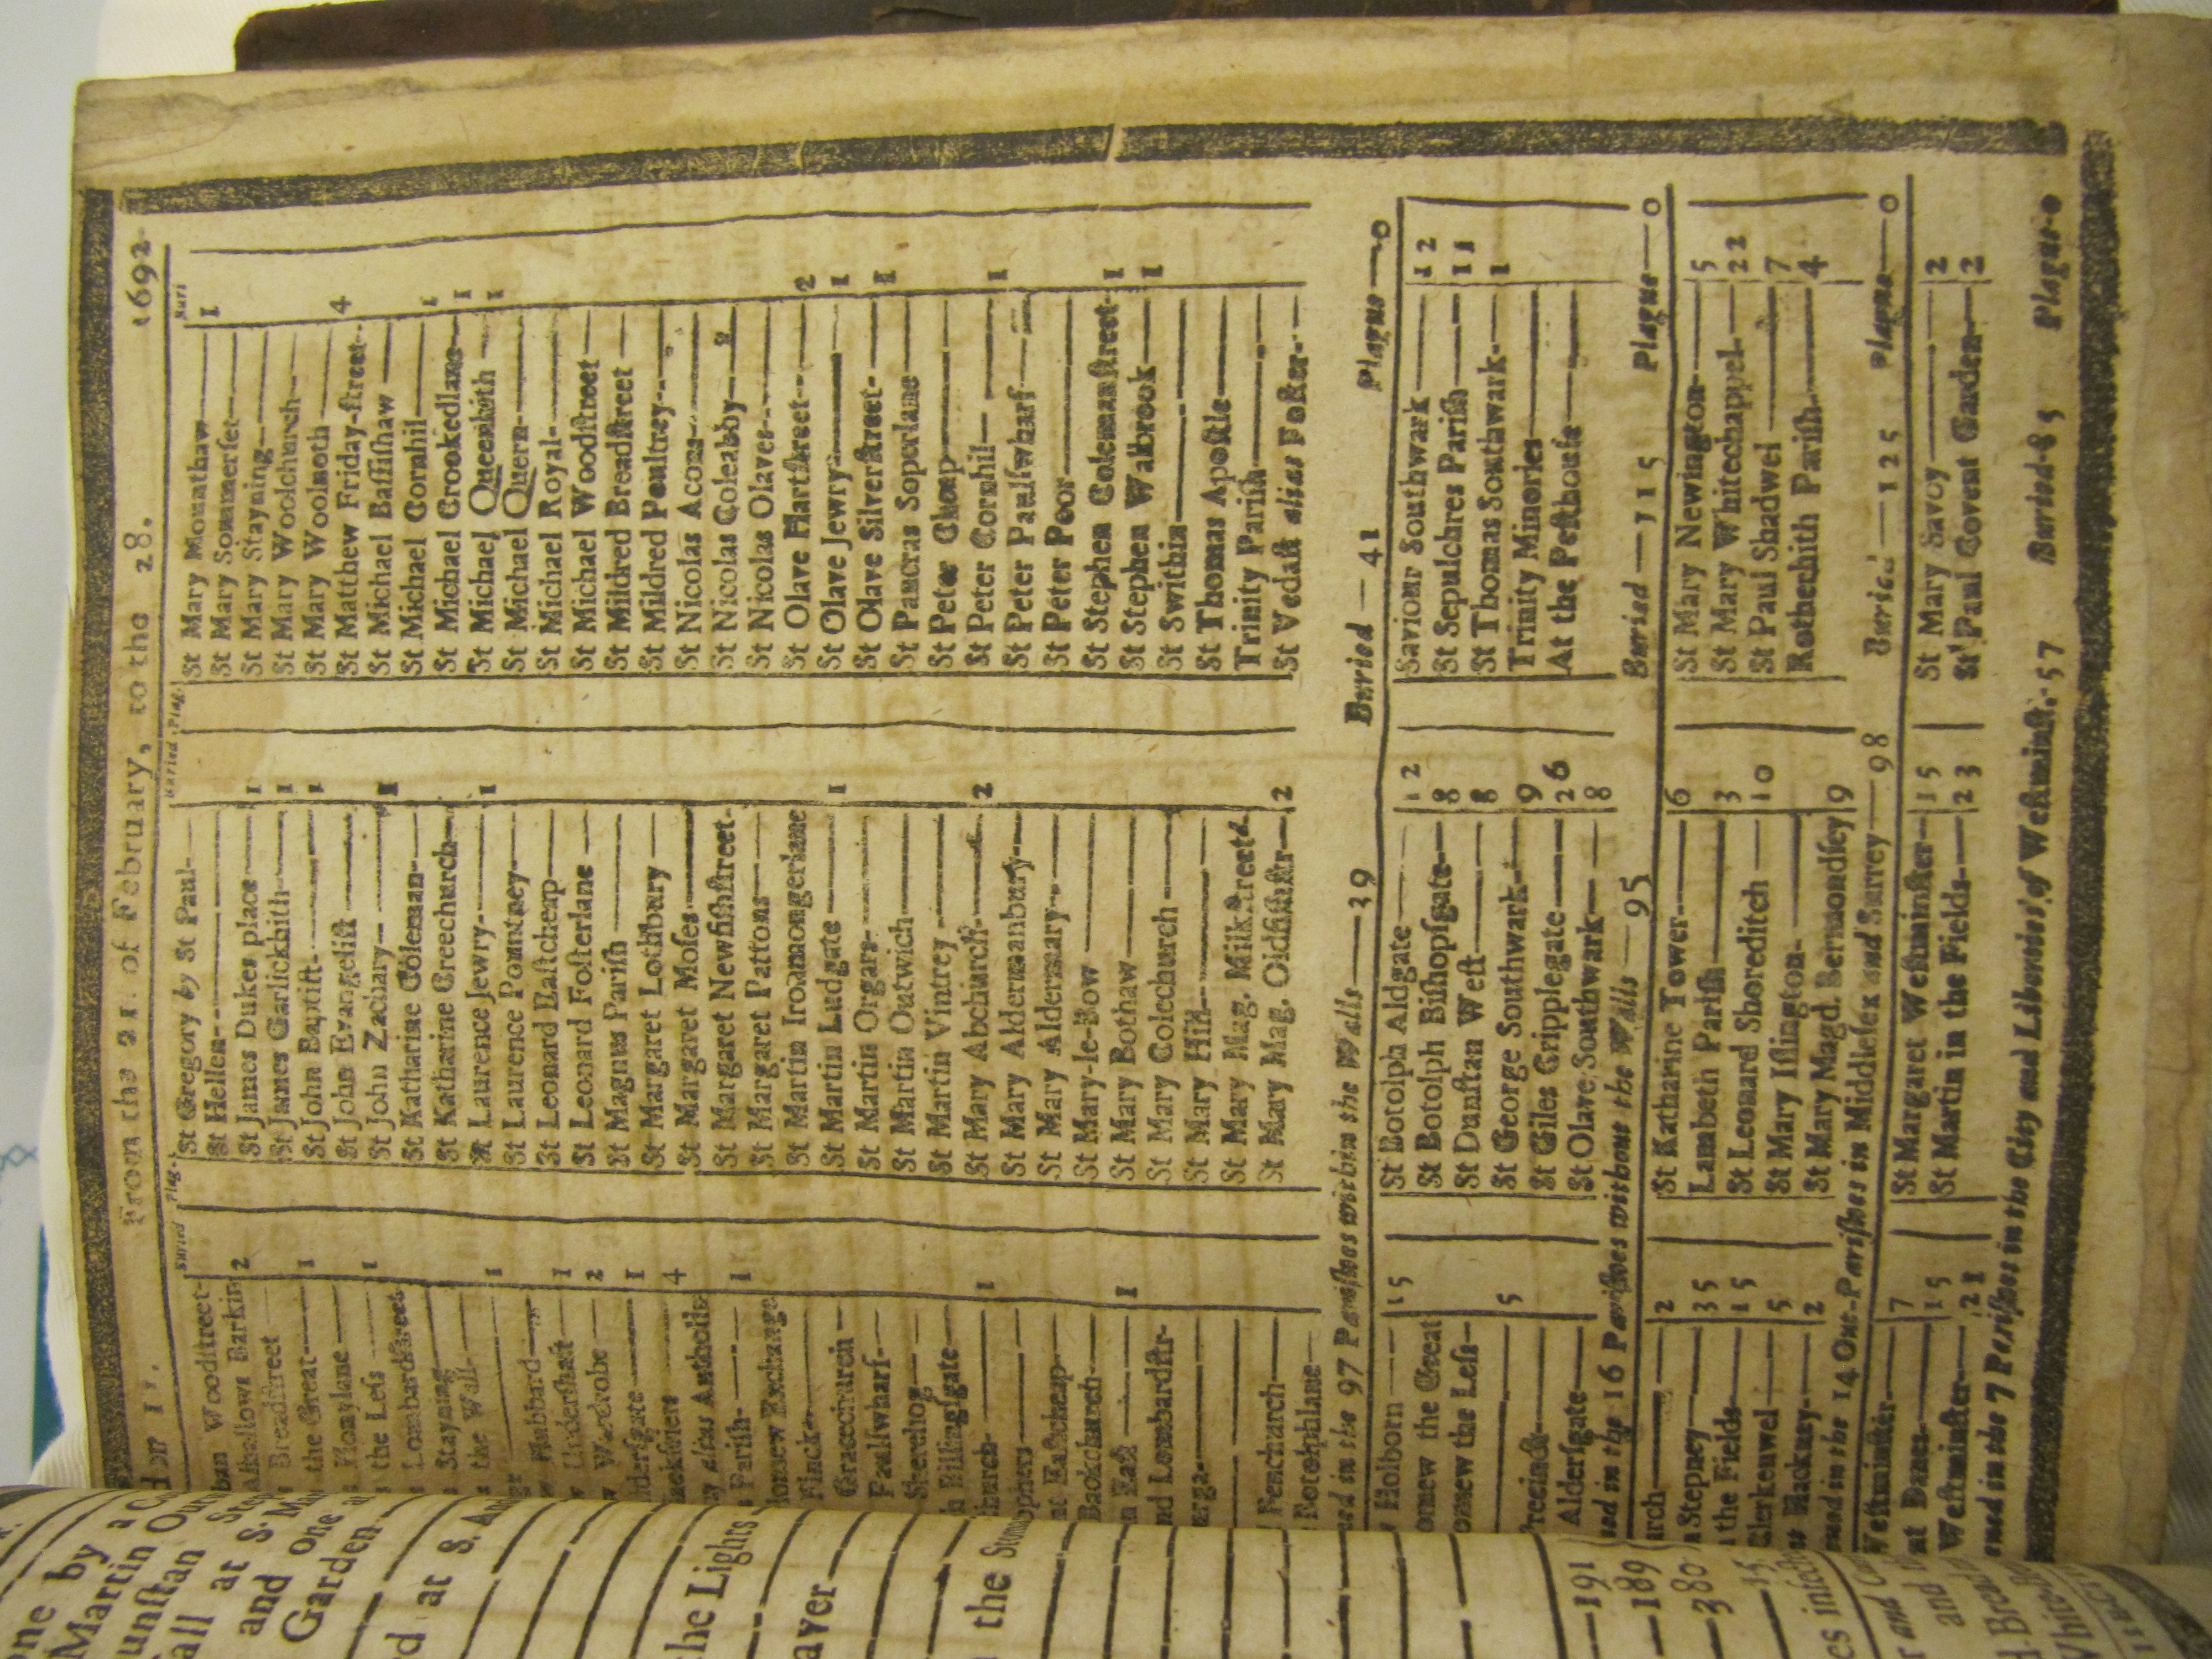 From the 21. of February, to the 28. 1692
Buried Plag.
Woodstreet-
Allhallows Barkin 2
Breadstreet
the Great— 1
Honylane
the Less 1
Lombardstreet
Stayning
the Wall- 1
Hubbard
Undershaft 1
Wardrobe 2
1
4
alias Antholin
Parish- 1
Exchange
Finck
Gracechurch
Paulswharf-
Sherehog
Billingsgate
1
Eastcheap
Backchurch
East 1
and Lombardstr-
Fenchurch
Rotophlane
St Gregory by St Paul-
St Hellen-
St James Dukes place 1
St James Garlickhith 1
St John Baptist- 1
St John Evangelist
St John Zachary- 1
St Katharine Coleman
St Katharine Creechurch
St Laurence Jewry- 1
St Laurence Pountney
St Leonard Eastcheap
St Leonard Fosterlane
St Magnus Parish
St Margaret Lothbury
St Margaret Moses
St Margaret Newfishstreet-
St Margaret Pattons
St Martin Ironmongerlane
St Martin Ludgate 1
St Martin Orgars
St Martin Outwich
St Martin Vintrey
St Mary Abchurch- 2
St Mary Aldermanbury
St Mary Aldermary
St Mary-le-Bow
St Mary Bothaw
St Mary Colechurch
St Mary Hill
St Mary Mag. Milkstreet
St Mary Mag. Oldfishstr— 2
St Mary Mounthaw 1
St Mary Sommerset
St Mary Stayning
St Mary Woolchurch
St Mary Woolnoth 4
St Matthew Friday-street
St Michael Bassishaw
St Michael Cornhil 1
St Michael Crookedlane 1
St Michael Queenhith 1
St Michael Quern
St Michael Royal-
St Michael Woodstreet
St Mildred Breadstreet
St Mildred Poultrey
St Nicolas Acons
St Nicolas Coleabby
St Nicolas Olaves
St Olave Hartstreet 2
St Olave Jewry 1
St Olave Silverstreet- 1
St Pancras Soperlane
St Peter Cheap
St Peter Cornhil 1
St Peter Paulswharf
St Peter Poor
St Stephen Colemanstreet 1
St Stephen Walbrook 1
St Swithin
St Thomas Apostle
Trinity Parish
St Vedast alias Foster
in the 97 Parishes within the Walls—39 Buried—41 Plague—0
Holborn 15
the Great
the Less
Precinct 5
Aldersgate
St Botolph Aldgate 12
St Botolph Bishopsgate 8
St Dunstan West 8
St George Southwark 9
St Giles Cripplegate 26
St Olave Southwark 8
Saviour Southwark 12
St Sepulchres Parish 11
St Thomas Southwark 1
Trinity Minories
At the Pesthouse
in the 16 Parishes without the Walls—95 Buried—115 Plague—0
2
Stepney 35
the Fields 15
Clerkenwel 5
Hackny 2
St Katharine Tower 6
Lambeth Parish 3
St Leonard Shoreditch 10
St Mary Islington
St Mary Magd. Bermondsey 9
St Mary Newington 5
St Mary Whitechappel 22
St Paul Shadwel 7
Rotherhith Parish 4
in the 14 Out-Parishes in Middlesex and Surrey—98 Buried—125 Plague—0
Westminster 7
Danes 15
Westminster 21
St Margaret Westminster 15
St Martin in the Fields 23
St Mary Savoy 2
St Paul Covent Garden 2
in the 7 Parishes in the City and Liberties of Westminst.-57 Buried-85 Plague-0
one by
Martin
and One
Garden
at S.
the Lights
the
191
189
380